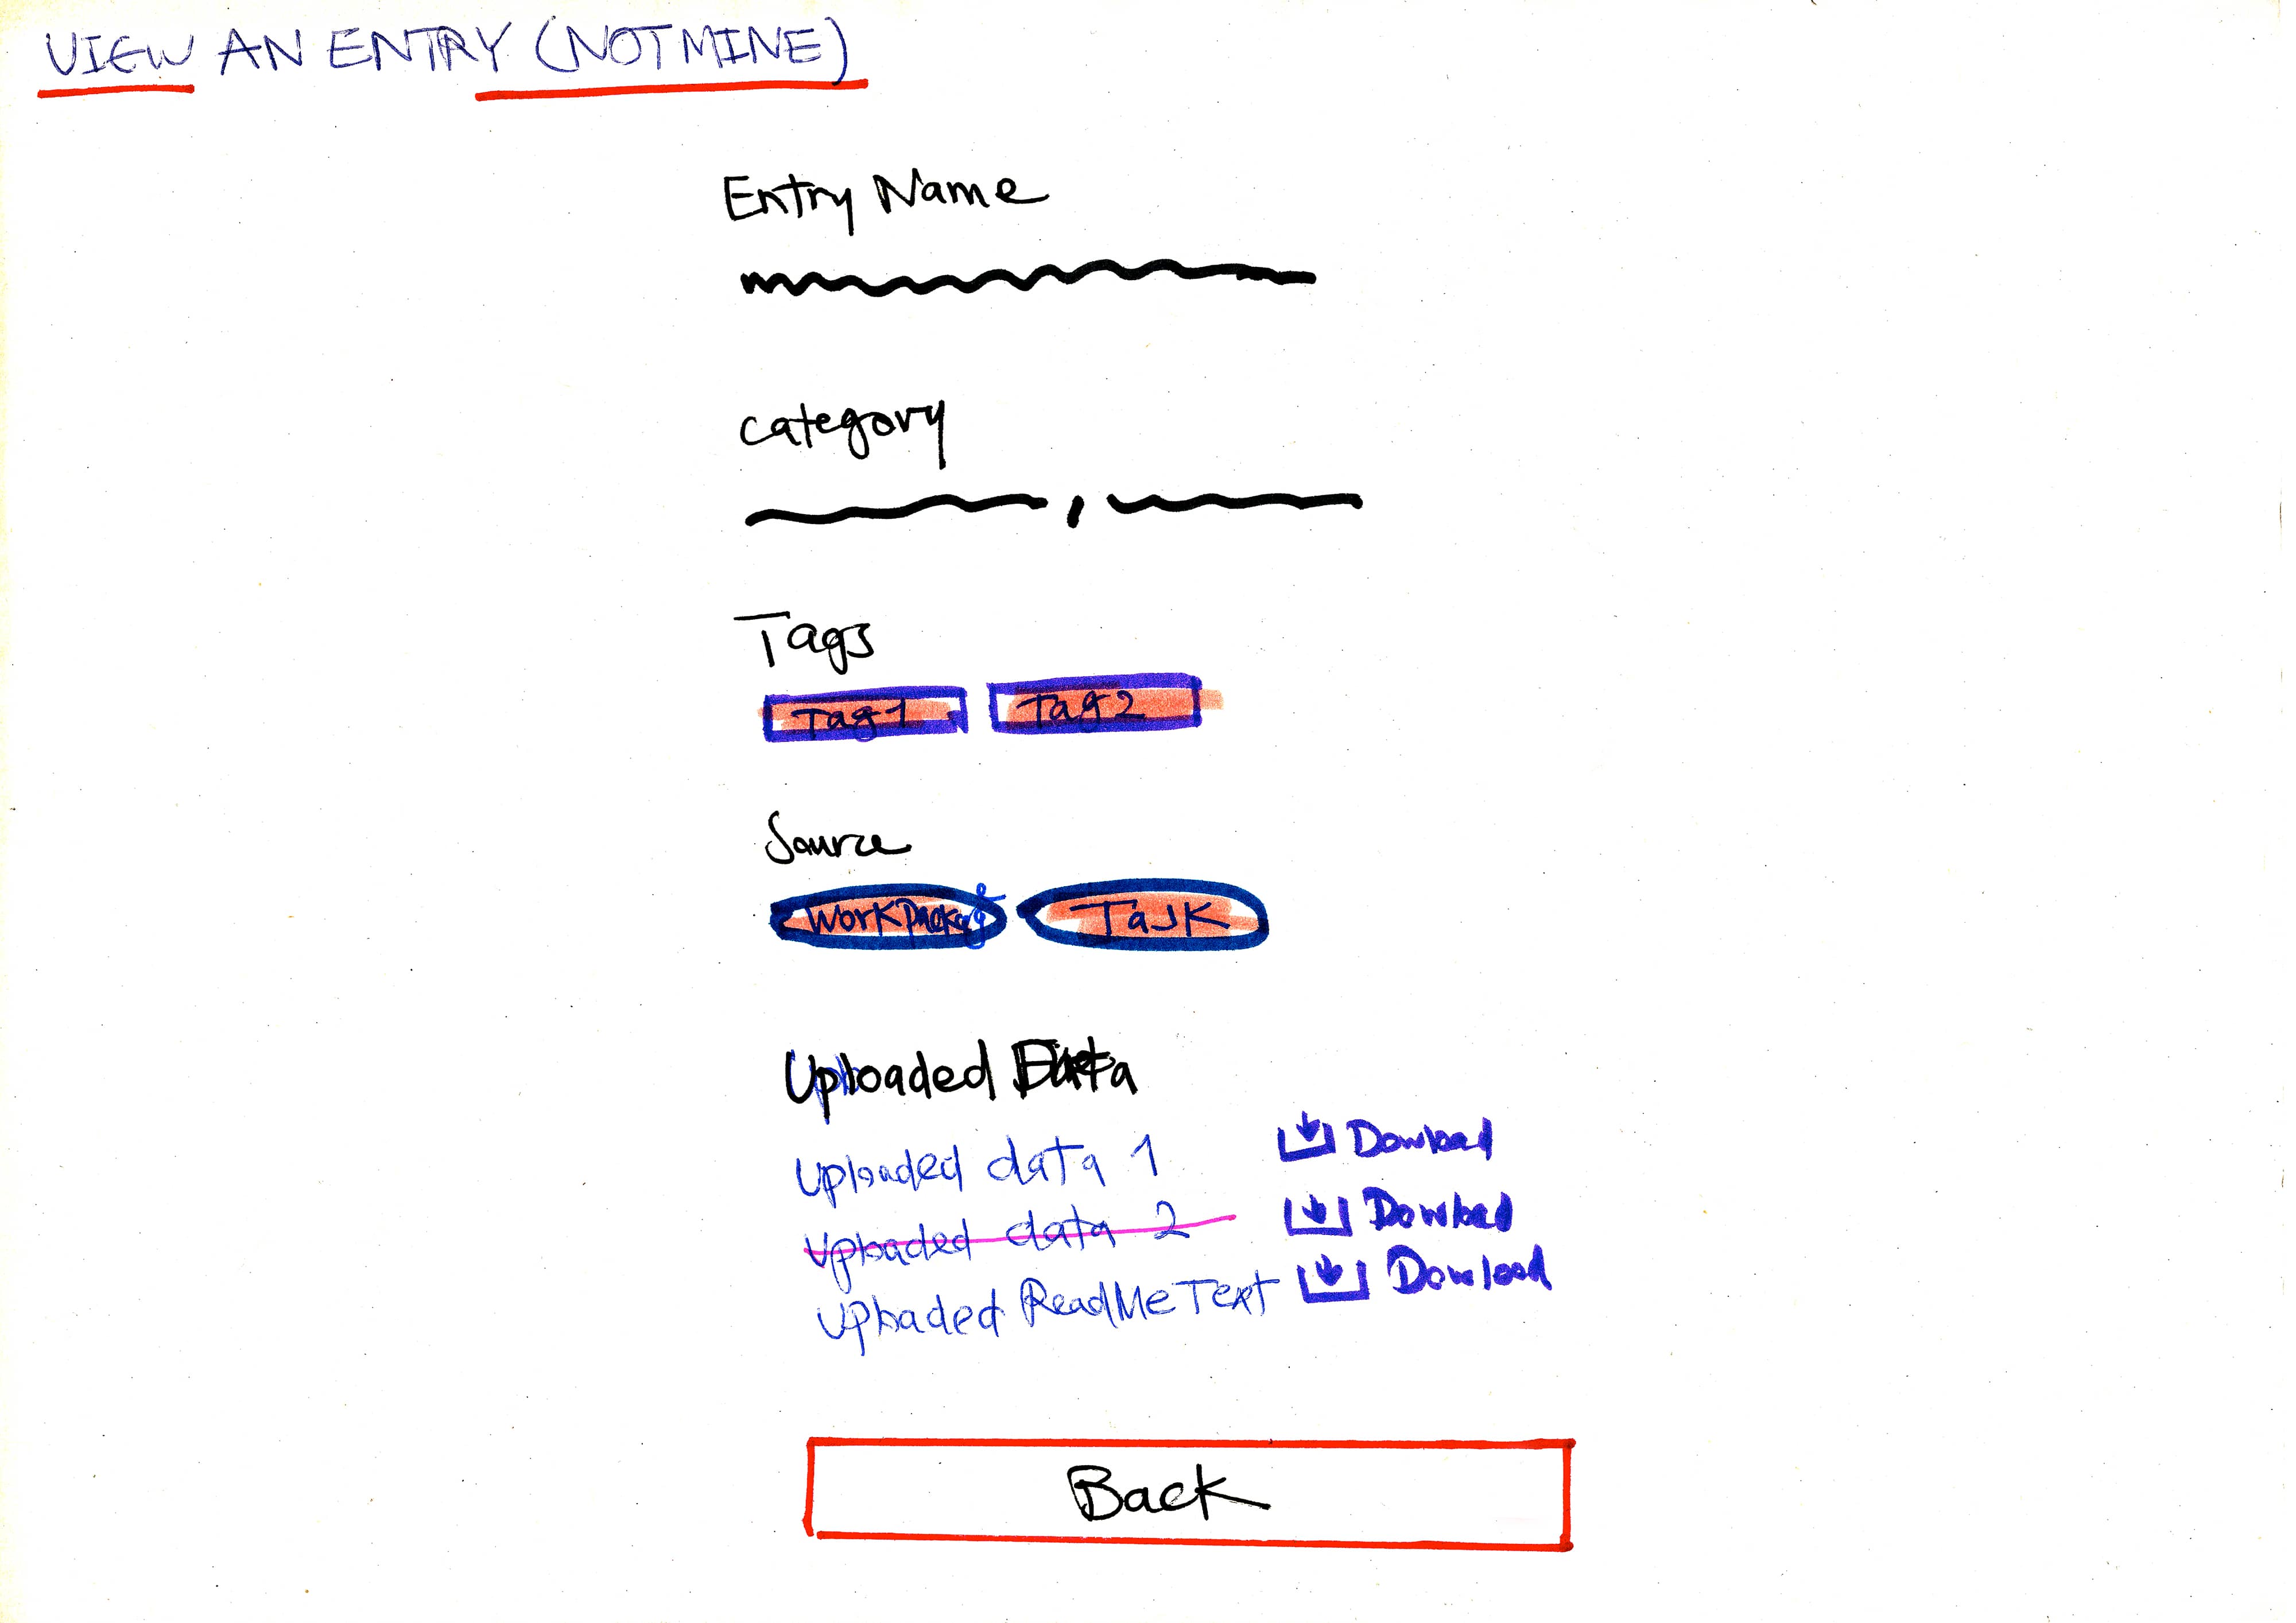 VIEW AN ENTRY (NOT MINE)
Entry Name
Category
Tags
Tag1 Tag2
Source
Workpackage Task
Uploaded Data
Uploaded data 1 Dowload
Uploaded data 2 Dowload
Uploaded ReadMe Text Dowload
Back